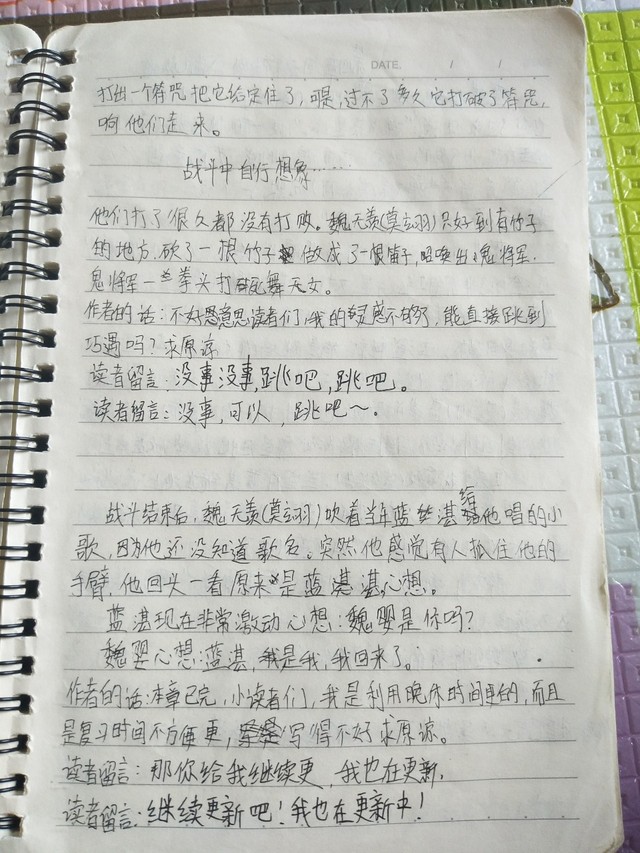 DATE. / /
打出一个符咒把它给定住了,可是,过不了多久它打破了符咒,
响他们走来。
战斗中自行想象……
他们打了很久都没有打败。魏无羡(莫玄羽)只好到有竹子
的地方,砍了一根竹子 做成了一根笛子,召唤出鬼将军,
鬼将军一拳头打死舞天女。
作者的话:不好意思读者们,我的灵感不够了,能直接跳到
巧遇吗?求原谅
读者留言:没事没事,跳吧,跳吧。
读者留言:没事,可以,跳吧~.
战斗结束后,魏无羡(莫玄羽)吹着当年蓝湛给他唱的小
歌,因为他还没知道歌名。突然他感觉有人抓住他的
手臂,他回头一看原来是蓝湛湛心想。
蓝湛现在非常激动心想:魏婴是你吗?
魏婴心想:蓝湛,我是我,我回来了。
作者的话:本章已完,小读者们,我是利用晚休时间更的,而且
是复习时间不方便更,写得不好求原谅。
读者留言:那你给我继续更,我也在更新.
读者留言:继续更新吧!我也在更新中!